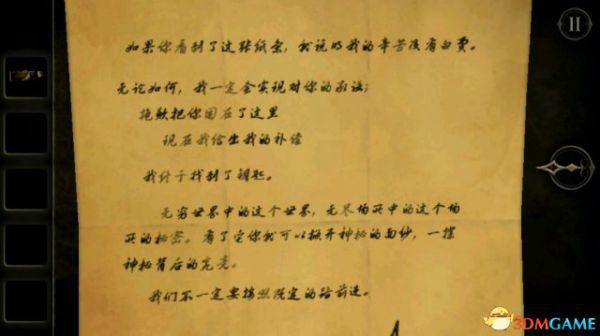 如果你看到了这张纸条，就说明我的辛苦没有白费。
无论如何，我一定会实现对你的承诺；
抱歉把你困在了这里
现在我给出我的补偿
我终于找到了钥匙。
无穷世界中的这个世界，无尽场所中的这个场
所的秘密。有了它你就可以掀开神秘的面纱，一探
神秘背后的究竟。
我们不一定要按照既定的路前进。
3DMGAME